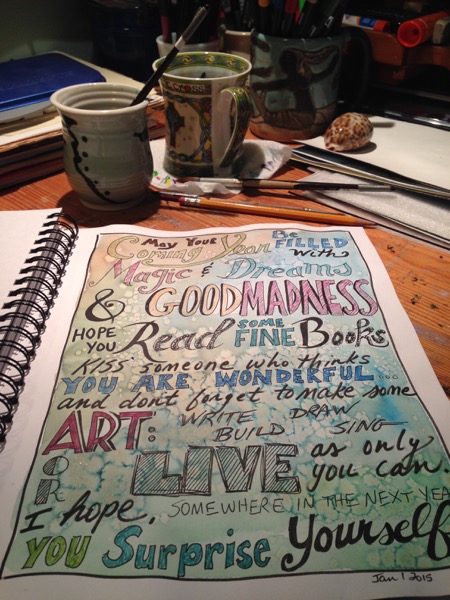 May Your Coming Year Be FILLED With
Magic & Dreams
& GOOD MADNESS
HOPE YOU Read SOME FINE Books
KISS someone who thinks
YOU ARE WONDERFUL...
and don't forget to make some
ART: WRITE DRAW
BUILD SING
OR LIVE as only you can.
I hope, SOMEWHERE IN THE NEXT YEA
YOU Surprise Yourself
Jan 1 2015